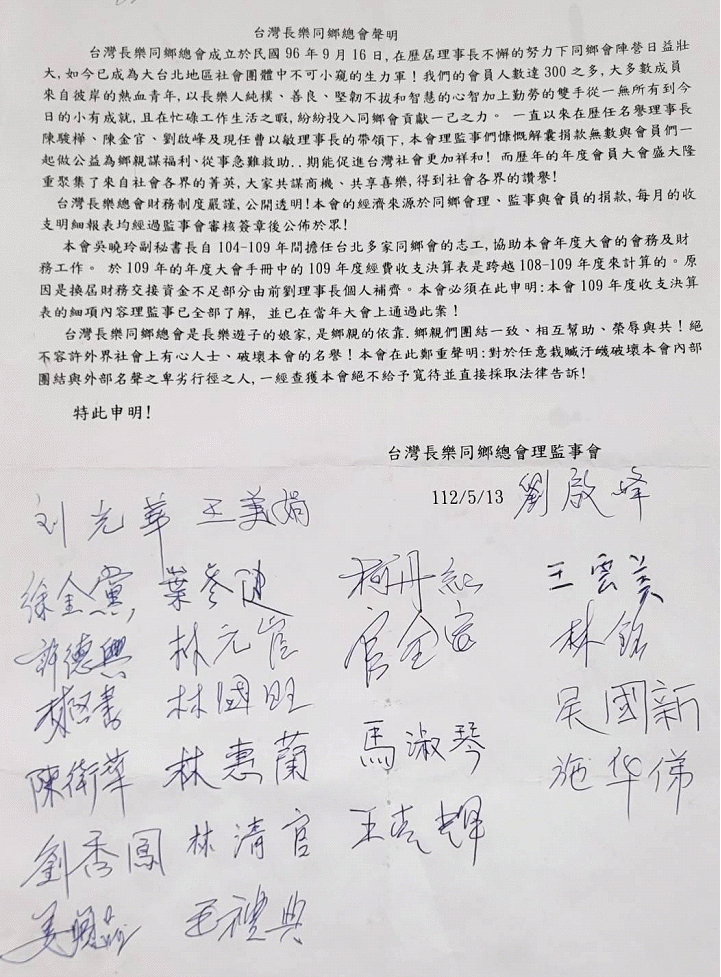 台灣長樂同鄉總會聲明
台灣長樂同鄉總會成立於民國96年9月16日,在歷屆理事長不懈的努力下同鄉會陣營日益壯
大,如今已成為大台北地區社會團體中不可小窺的生力軍!我們的會員人數達300之多,大多數成員
來自彼岸的熱血青年,以長樂人純樸、善良、堅韌不拔和智慧的心智加上勤勞的雙手從一無所有到今
日的小有成就,且在忙碌工作生活之暇,紛紛投入同鄉會貢獻一己之力。 一直以來在歷任名譽理事長
陳駿樺、陳金官、劉啟峰及現任曹以敏理事長的帶領下,本會理監事們慷慨解囊捐款無數與會員們一
起做公益為鄉親謀福利、從事急難救助..期能促進台灣社會更加祥和! 而歷年的年度會員大會盛大隆
重聚集了來自社會各界的菁英,大家共謀商機、共享喜樂,得到社會各界的讚譽!
台灣長樂總會財務制度嚴謹,公開透明!本會的經濟來源於同鄉會理、監事與會員的捐款,每月的收
支明細報表均經過監事會審核簽章後公佈於眾!
本會吳曉玲副秘書長自104-109年間擔任台北多家同鄉會的志工,協助本會年度大會的會務及財
務工作。 於109年的年度大會手冊中的109年度經費收支決算表是跨越108-109年度來計算的。原
因是換屆財務交接資金不足部分由前劉理事長個人補齊。本會必須在此申明:本會109年度收支決算
表的細項內容理監事已全部了解, 並已在當年大會上通過此案!
台灣長樂同鄉總會是長樂遊子的娘家,是鄉親的依靠.鄉親們團結一致、相互幫助、榮辱與共!絕
不容許外界社會上有心人士、破壞本會的名譽!本會在此鄭重聲明:對於任意栽贓汙衊破壞本會內部
團結與外部名聲之卑劣行徑之人,一經查獲本會絕不給予寬待並直接採取法律告訴!
特此申明!
台灣長樂同鄉總會理監事會
112/5/13 劉啟峰
刘光華 王美娟
徐金黨 葉冬健 柯丹紅 王雲美
許德興 林元官 官金富 林銘
林國旺 吴國新
陳衛華 林惠蘭 馬淑琴 施华俤
劉秀鳳 林清官 王克輝
王禮典